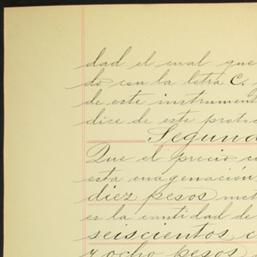 dad el cual que
do con la letra C.
de este instrument
dice de este proto
Segund
Que el precio
esta enagenación
diez pesos met
es la cantidad de
seiscientos c
y ocho pesos